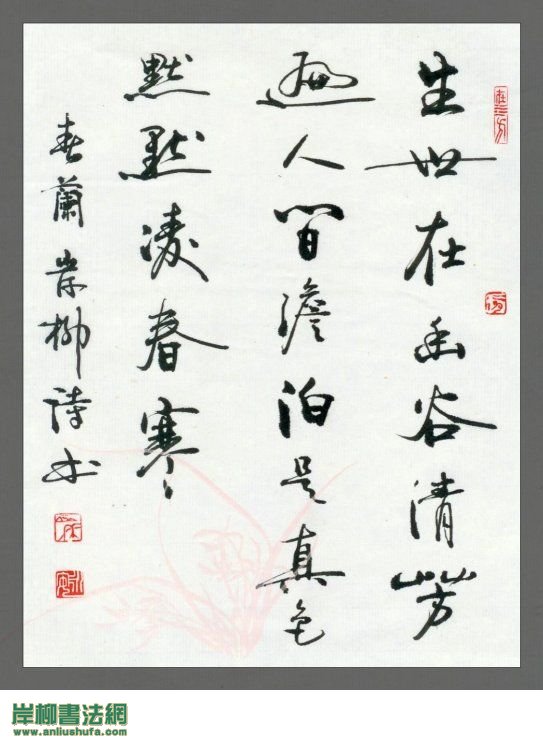 生世在幽谷清芳
遍人间澹泊是真色
默默凌春寒
春蘭岸柳詩书
岸柳書法網
www.anliushufa.com